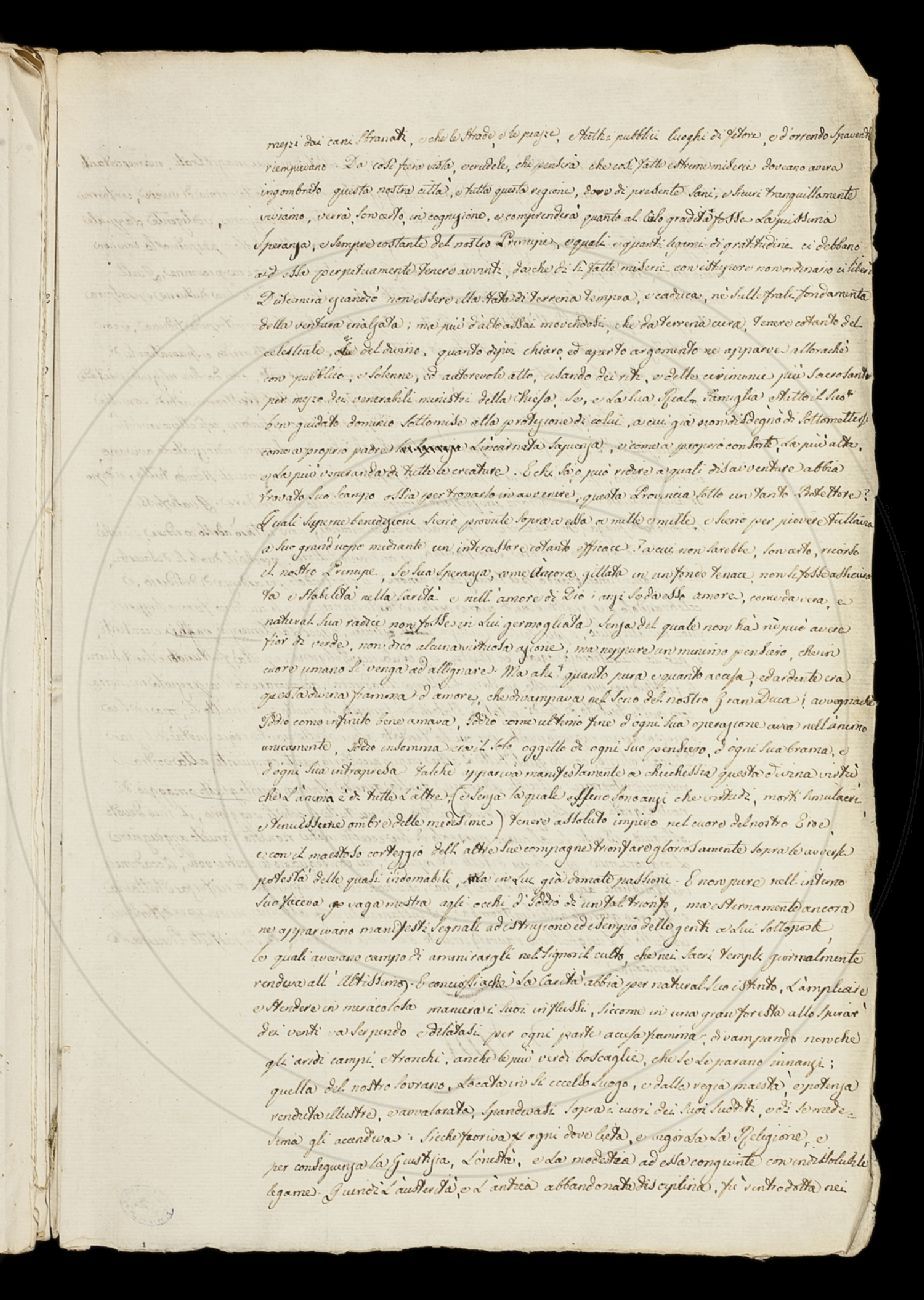 mezzi dai cani sbranati, e che le strade, e le piazze, e tutti i pubblici luoghi di fetore, e d'orrendo spavento
riempivano. Da così fiera vista, e crudele, che penserà che così fatte estreme miserie doveano avere
ingombrato questa nostra città, e tutta questa regione, dove di presente sani, e sicuri tranquillamente
viviamo, verrà, son certo, in cognizione, e comprenderà quanto al Cielo gradita fosse la piissima
speranza, e sempre costante del nostro Principe, e quali e quanti legami di gratitudine ci debbano
ad essa perpetuamente tenere avvinti, da che di sì fatte miserie con istupore non ordinario ci liberò
eziandio non essere ella stata di terrena tempra, e caduca, nè sulle frali fondamenta
della ventura inalzata; ma più d'alto assai movendosi, che da terrena cura, tenere cotanto del
celestiale, e del divino, quanto di più chiaro ed aperto argomento ne apparve allorachè
con pubblico, e solenne, ed autorevole atto, usando dei riti, e delle cerimonie più sacrosante
per mezzo dei venerabili ministri della Chiesa, Se, e La Sua Real Famiglia e tutto il suo
ben guidato dominio sottomise alla protezione di colui, a cui già non disdegnò di sottomettersi
come a proprio padre L'incarnata Sapienza, e come a proprio consorte, La più alta,
e La più veneranda di tutte le creature. E chi sa, o può ridire a quali disavventure abbia
trovato suo scampo o sia per trovarlo in avvenire, questa Provincia sotto un tanto Protettore?
Quali superne benedizioni sieno piovute sopra a essa a mille a mille, e sieno per piovere tuttavia
a suo grand'uopo mediante un intercessore cotanto efficace? a cui non sarebbe, son certo, ricorso
il nostro Principe, se sua speranza, come Ancora gittata in un fondo tenace non si fosse assicura
ta e stabilità nella Carità e nell'amore di Dio; anzi se da esso amore, come da vera, e
natural sua radice non fosse in lui germogliata, senza del quale non ha nè può avere
fior di verde, non dico alcuna virtuosa azione, ma neppure un minimo pensiero, che in
cuore umano si venga ad allignare. Ma ahi! quanto pura e quanto accesa, ed ardente era
questa divina fiamma d'amore, che divampava nel seno del nostro Gran Duca! avvegnachè
Iddio come infinito bene amava, Iddio come ultimo fine d'ogni sua operazione avea nell'animo
unicamente, Iddio insomma era il solo oggetto di ogni suo pensiero, d'ogni sua brama, e
d'ogni sua intrapresa talchè appariva manifestamente a chicchessia questa divina virtù
che L'anima è di tutte L'altre (e senza la quale esse sono anzi che virtudi, morti simulacri
e tenuissime ombre delle medesime) tenere assoluto impero nel cuore del nostro Eroe,
e con il maestoso corteggio dell'altre sue compagne trionfare gloriosamente sopra le avverse
potestà delle quasi indomabili, in Lui già domate passioni. E non pure nell'interno
suo faceva vaga mostra agli occhi d'Iddio di un tal trionfo, ma esternamente ancora
ne apparivano manifesti segnali ad istruzione ed esempio delle genti a Lui sottoposte
le quali avevano campo di ammirargli nel signoril culto, che nei Sacri Templi giornalmente
rendeva all'Altissimo. E conciossiachè La Carità abbia per natural suo istinto, L'ampliare
e stendere in miracolosa maniera i suoi influssi, siccome in una gran foresta allo spirar
dei venti va serpendo e dilatasi per ogni parte accesa fiamma, divampando non che
gli aridi campi, e tronchi, anche le più verdi boscaglie, che se le parano innanzi;
quella del nostro sovrano, Locata in sì eccelso luogo, e dalla regia maestà, e potenza
renduta illustre, e avvalorata, spandevasi sopra i cuori dei suoi sudditi, e di se mede=
sima gli accendeva. Sicchè fioriva ogni dove lieta, e vigorosa La Religione, e
per conseguenza La Giustizia, L'onestà, e La modestia ad essa congiunte con indissolubile
legame. Quindi L'austerità, e L'antica abbandonata disciplina, fu introdotta nei